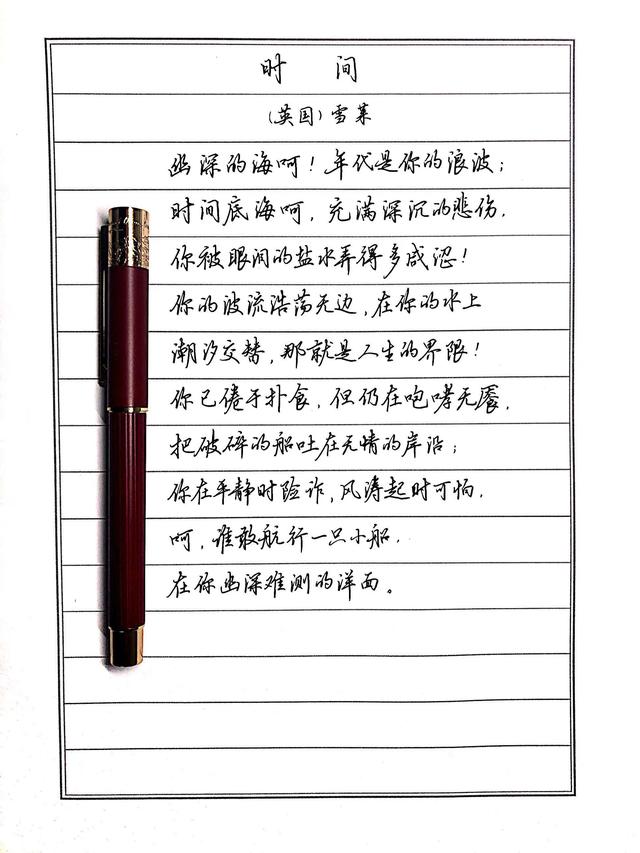 时 间
(英国)雪莱
幽深的海呵！年代是你的浪波；
时间底海呵，充满深沉的悲伤，
你被眼间的盐水弄得多咸涩！
你的波流浩荡无边，在你的水上
潮汐交替，那就是人生的界限！
你已倦于扑食，但仍在咆哮无餍，
把破碎的船吐在无情的岸沿；
你在平静时险诈，风涛起时可怕，
呵，谁敢航行一只小船，
在你幽深难测的洋面。